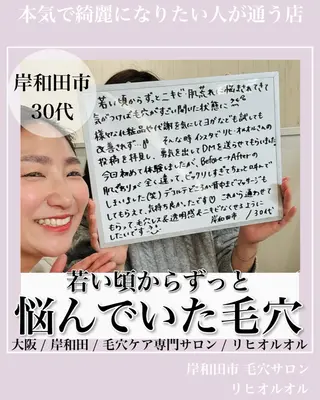 本気で綺麗になりたい人が通う店
岸和田市
30代
若い頃からずっとニキビ肌荒れに悩まされてきて
気がつけば毛穴がすごい開いた状態に
様々な化粧品や代謝を気にしてヨガなども試しても
改善されず…そんな時インスタでリヒオルオルさんの
投稿を拝見し、勇気を出してDMを送らせてもらいました
今回初めて体験しましたが、Before→Afterの
肌ざわりが全く違って、ビックリしすぎてちょっと口外して
しまいました(笑)デコルテどころか背中までマッサージも
してもらえて、気持ち良かったです♡これから通わせて
もらって、毛穴レス&透明感オニキビなくせるように
したいです
岸和田市 / 30代
若い頃からずっと
悩んでいた毛穴
大阪 / 岸和田 / 毛穴ケア専門サロン / リヒオルオル
岸和田市 毛穴サロン
リヒオルオル